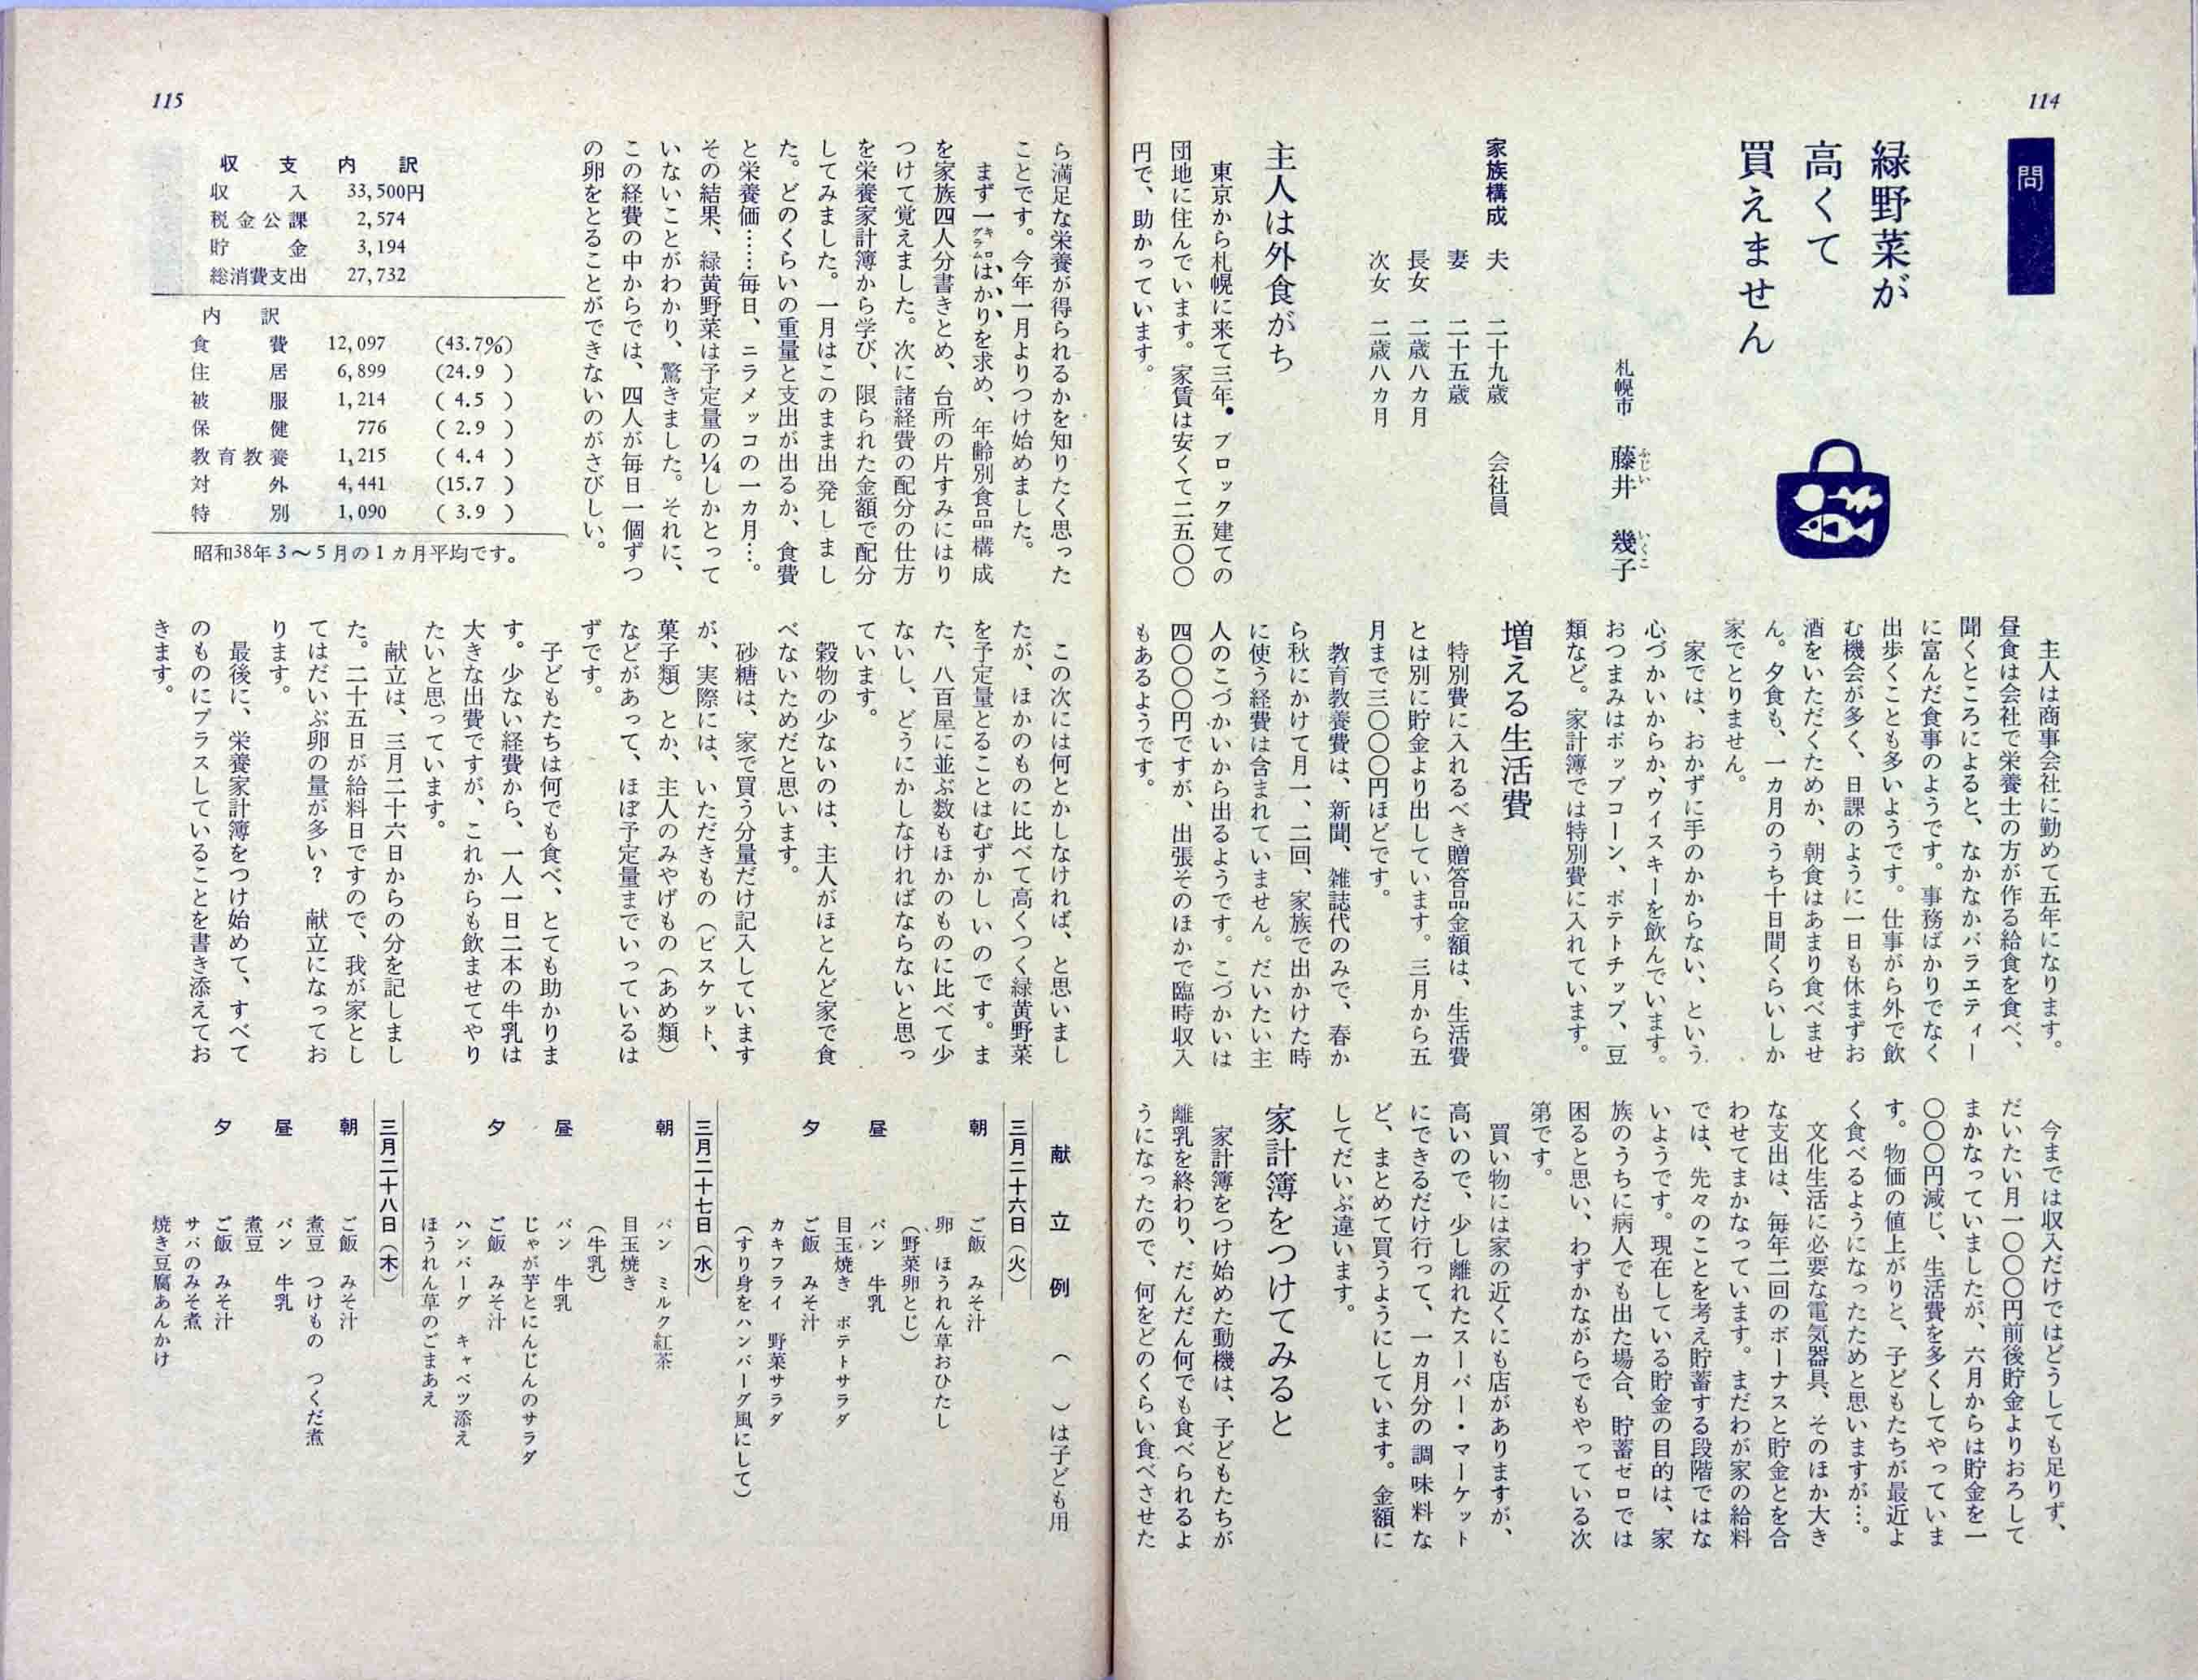 114
問
緑野菜が
高くて
買えません
札幌市 藤井 幾子
ふじい いくこ
家族構成 夫 二十九歳 会社員
妻 二十五歳
長女 二歳八カ月
次女 二歳八カ月
主人は外食がち
東京から札幌に来て三年。ブロック建ての
団地に住んでいます。家賃は安くて二五〇〇
円で、助かっています。
主人は商事会社に勤めて五年になります。
昼食は会社で栄養士の方が作る給食を食べ、
聞くところによると、なかなかバラエティー
に富んだ食事のようです。事務ばかりでなく
出歩くことも多いようです。仕事がら外で飲
む機会が多く、日課のように一日も休まずお
酒をいただくためか、朝食はあまり食べませ
ん。夕食も、一カ月のうち十日間くらいしか
家でとりません。
家では、おかずに手のかからない、という
心づかいからか、ウイスキーを飲んでいます。
おつまみはポップコーン、ポテトチップ、豆
類など。家計簿では特別費に入れています。
増える生活費
特別費に入れるべき贈答品金額は、生活費
とは別に貯金より出しています。三月から五
月まで三〇〇〇円ほどです。
教育教養費は、新聞、雑誌代のみで、春か
ら秋にかけて月一、二回、家族で出かけた時
に使う経費は含まれていません。だいたい主
人のこづかいから出るようです。こづかいは
四〇〇〇円ですが、出張そのほかで臨時収入
もあるようです。
今までは収入だけではどうしても足りず、
だいたい月一〇〇〇円前後貯金よりおろして
まかなっていましたが、六月からは貯金を一
〇〇〇円減じ、生活費を多くしてやっていま
す。物価の値上がりと、子どもたちが最近よ
く食べるようになったためと思いますが…。
文化生活に必要な電気器具、そのほか大き
な支出は、毎年二回のボーナスと貯金とを合
わせてまかなっています。まだわが家の給料
では、先々のことを考え貯蓄する段階ではな
いようです。現在している貯金の目的は、家
族のうちに病人でも出た場合、貯蓄ゼロでは
困ると思い、わずかながらでもやっている次
第です。
買い物には家の近くにも店がありますが、
高いので、少し離れたスーパー・マーケット
にできるだけ行って、一カ月分の調味料な
ど、まとめて買うようにしています。金額に
してだいぶ違います。
家計簿をつけてみると
家計簿をつけ始めた動機は、子どもたちが
離乳を終わり、だんだん何でも食べられるよ
うになったので、何をどのくらい食べさせた
115
ら満足な栄養が得られるかを知りたく思った
ことです。今年一月よりつけ始めました。
まず一キログラムはかりを求め、年齢別食品構成
を家族四人分書きとめ、台所の片すみにはり
つけて覚えました。次に諸経費の配分の仕方
を栄養家計簿から学び、限られた金額で配分
してみました。一月はこのまま出発しまし
た。どのくらいの重量と支出が出るか、食費
と栄養価……毎日、ニラメッコの一カ月…。
その結果、緑黄野菜は予定量の¼しかとって
いないことがわかり、驚きました。それに、
この経費の中からでは、四人が毎日一個ずつ
の卵をとることができないのがさびしい。
収支内訳
収入 33,500円
税金公課 2,574
貯金 3,194
総消費支出 27,732
内訳
食費 12,097 (43.7%)
住居 6,899 (24.9 )
被服 1,214 ( 4.5 )
保健 776 ( 2.9 )
教育教養 1,215 ( 4.4 )
対外 4,441 (15.7 )
特別 1,090 ( 3.9 )
昭和38年3～5月の1カ月平均です。
この次には何とかしなければ、と思いまし
たが、ほかのものに比べて高くつく緑黄野菜
を予定量とることはむずかしいのです。ま
た、八百屋に並ぶ数もほかのものに比べて少
ないし、どうにかしなければならないと思っ
ています。
穀物の少ないのは、主人がほとんど家で食
べないためだと思います。
砂糖は、家で買う分量だけ記入しています
が、実際には、いただきもの（ビスケット、
菓子類）とか、主人のみやげもの（あめ類）
などがあって、ほぼ予定量までいっているは
ずです。
子どもたちは何でも食べ、とても助かりま
す。少ない経費から、一人一日二本の牛乳は
大きな出費ですが、これからも飲ませてやり
たいと思っています。
献立は、三月二十六日からの分を記しまし
た。二十五日が給料日ですので、我が家とし
てはだいぶ卵の量が多い？ 献立になってお
ります。
最後に、栄養家計簿をつけ始めて、すべて
のものにプラスしていることを書き添えてお
きます。
献立例 （ ）は子ども用
三月二十六日（火）
朝 ご飯 みそ汁
卵 ほうれん草おひたし
（野菜卵とじ）
昼 パン 牛乳
目玉焼き ポテトサラダ
夕 ご飯 みそ汁
カキフライ 野菜サラダ
（すり身をハンバーグ風にして）
三月二十七日（水）
朝 パン ミルク紅茶
目玉焼き
（牛乳）
昼 パン 牛乳
じゃが芋とにんじんのサラダ
夕 ご飯 みそ汁
ハンバーグ キャベツ添え
ほうれん草のごまあえ
三月二十八日（木）
朝 ご飯 みそ汁
煮豆 つけもの つくだ煮
昼 パン 牛乳
煮豆
夕 ご飯 みそ汁
サバのみそ煮
焼き豆腐あんかけ